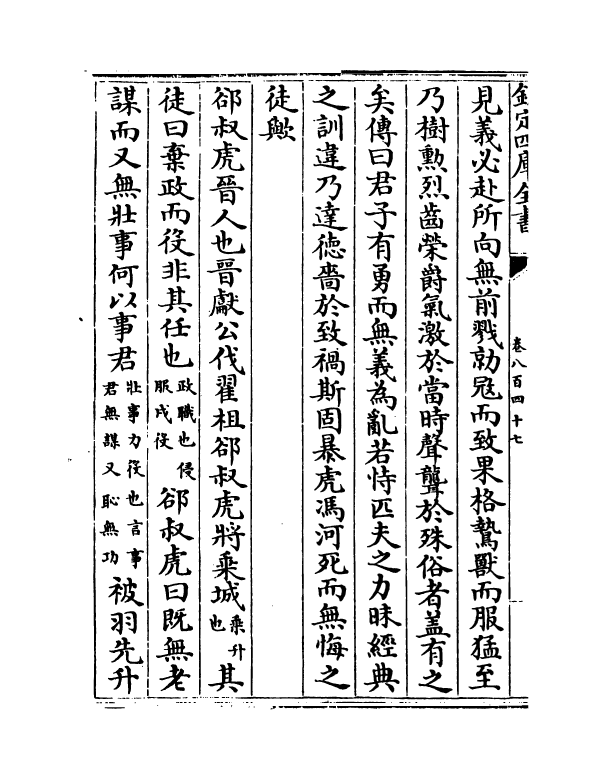 欽定四庫全書
卷八百四十七
見義必赴所向無前戮勍冦而致果格鷙獸而服猛至
乃樹勲烈齒榮爵氣激於當時聲讋於殊俗者盖有之
矣傳曰君子有勇而無義為亂若恃匹夫之力昧經典
之訓違乃達徳嗇於致禍斯固暴虎馮河死而無悔之
徒歟
郤叔虎晉人也晉獻公伐翟柤郤叔虎將乗城乗升也其
徒曰棄政而役非其任也政職也侵服戍役郤叔虎曰既無老
謀而又無壯事何以事君壯事力役也言事君無謀又恥無功被羽先升